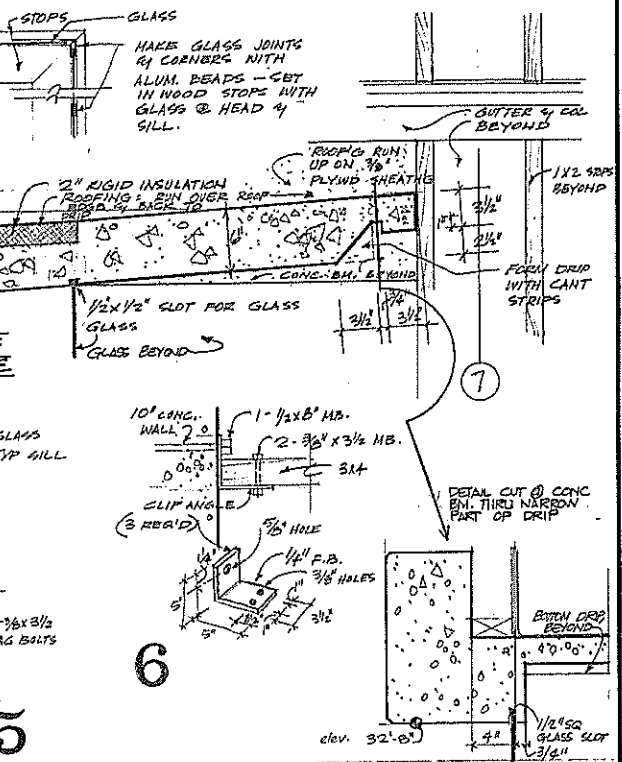 STOPS
GLASS
MAKE GLASS JOINTS
& CORNERS WITH
ALUM. BEADS - SET
IN WOOD STOPS WITH
GLASS @ HEAD &
SILL.
GUTTER & COL
BEYOND
ROOF'G RUN
UP ON 3/8"
PLYWD SHEATH'G
2" RIGID INSULATION
ROOFING: RUN OVER ROOF
EDGE & BACK TO
DRIP
1X2 STOPS
BEYOND
3 1/2"
1"
2 1/2"
6"
CONC. BM. BEYOND
FORM DRIP
WITH CANT
STRIPS
1/2" X 1/2" SLOT FOR GLASS
GLASS
GLASS BEYOND
3 1/2"
3/4"
3 1/2"
7
GLASS
TYP SILL
10" CONC.
WALL
1 - 1/2 X 8" MB.
2 - 3/8" X 3 1/2 MB.
3X4
CLIP ANGLE
(3 REQ'D)
5/8" HOLE
1/4" F.B.
3/8" HOLES
1/4"
5"
5"
1 1/2"
1"
1"
3 1/2"
6
DETAIL CUT @ CONC
BM. THRU NARROW
PART OF DRIP
3/8 X 3 1/2
AG BOLTS
5
BOTTOM DRIP
BEYOND
elev. 32'-8"
4"
1/2" SQ
GLASS SLOT
3/4"